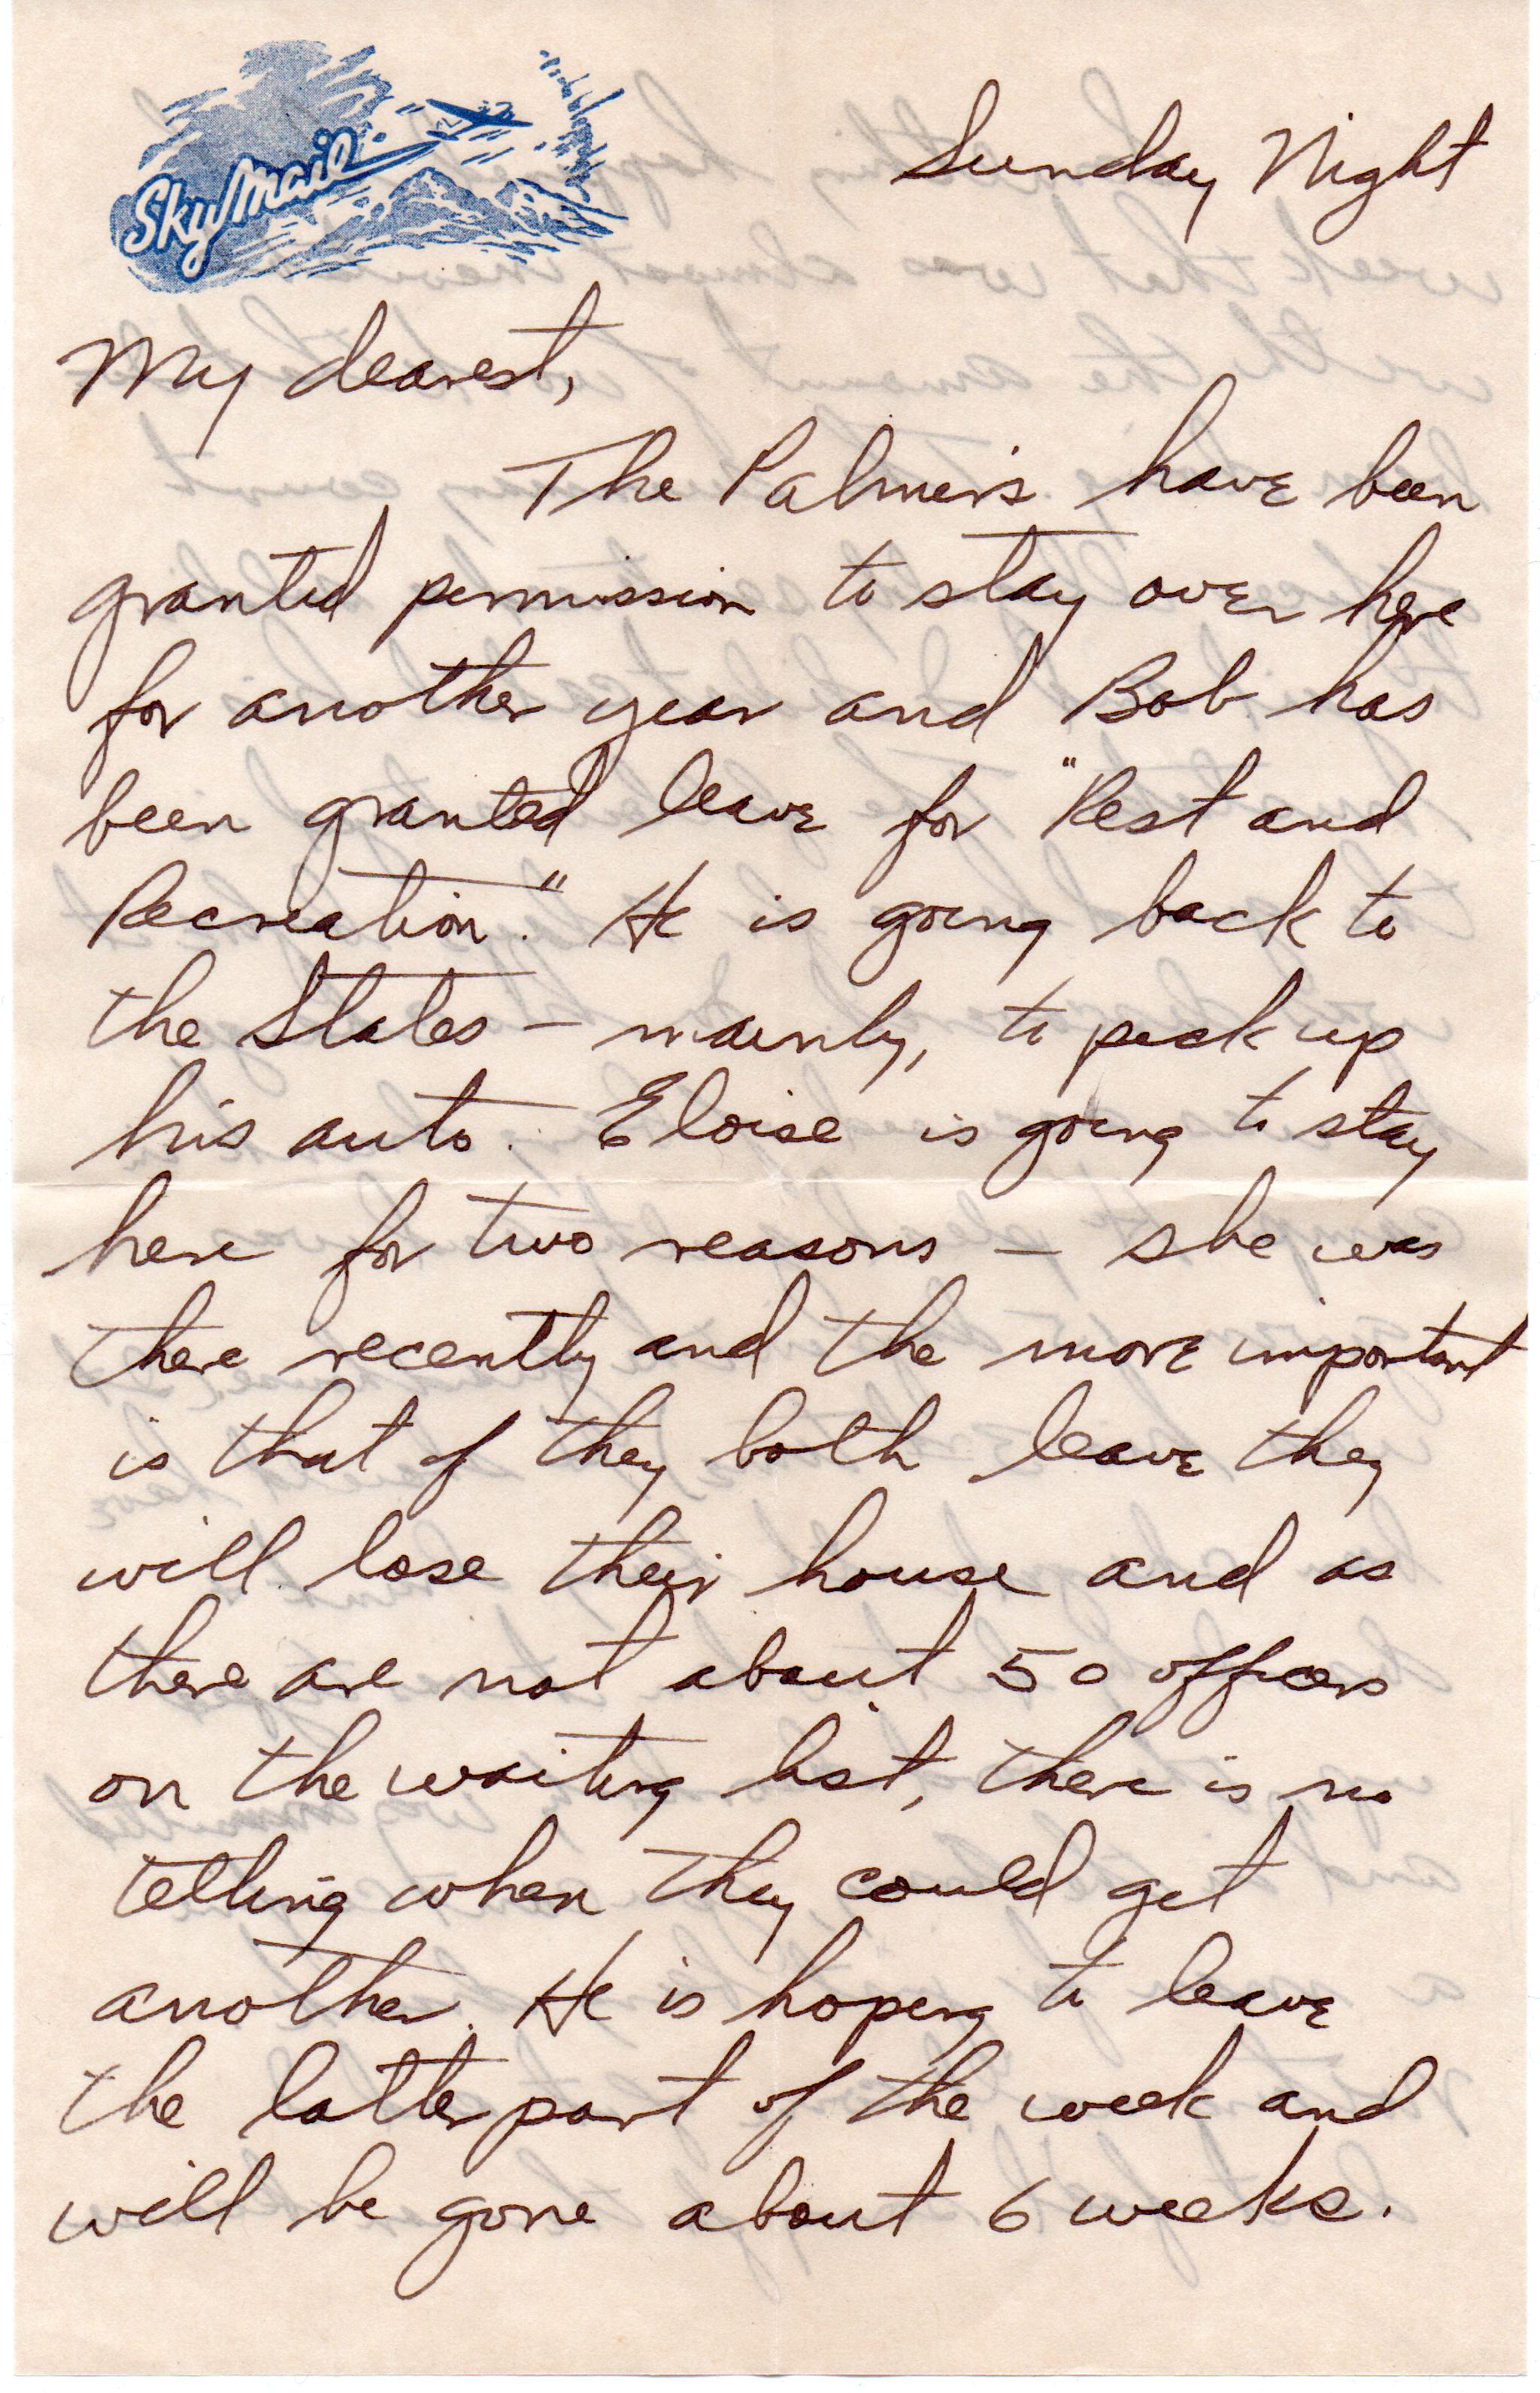 SkyMail
Sunday Night
My dearest,
The Palmers have been
granted permission to stay over here
for another year and Bob has
been granted leave for "Rest and
Recreation." He is going back to
the States – mainly, to pick up
his auto. Eloise is going to stay
here for two reasons – she was
there recently and the more important
is that if they both leave they
will lose their house and as
there are not about 50 officers
on the waiting list, there is no
telling when they could get
another. He is hoping to leave
the latter part of the week and
will be gone about 6 weeks.